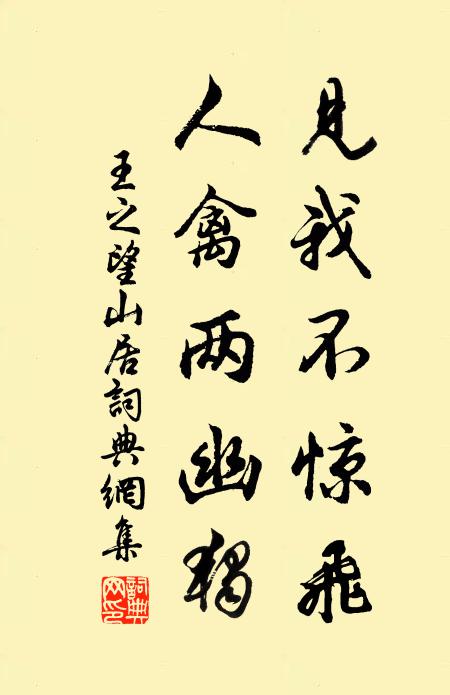 見我不惊飛
人禽两幽独
王之望山居詞典網集
詞典
网印